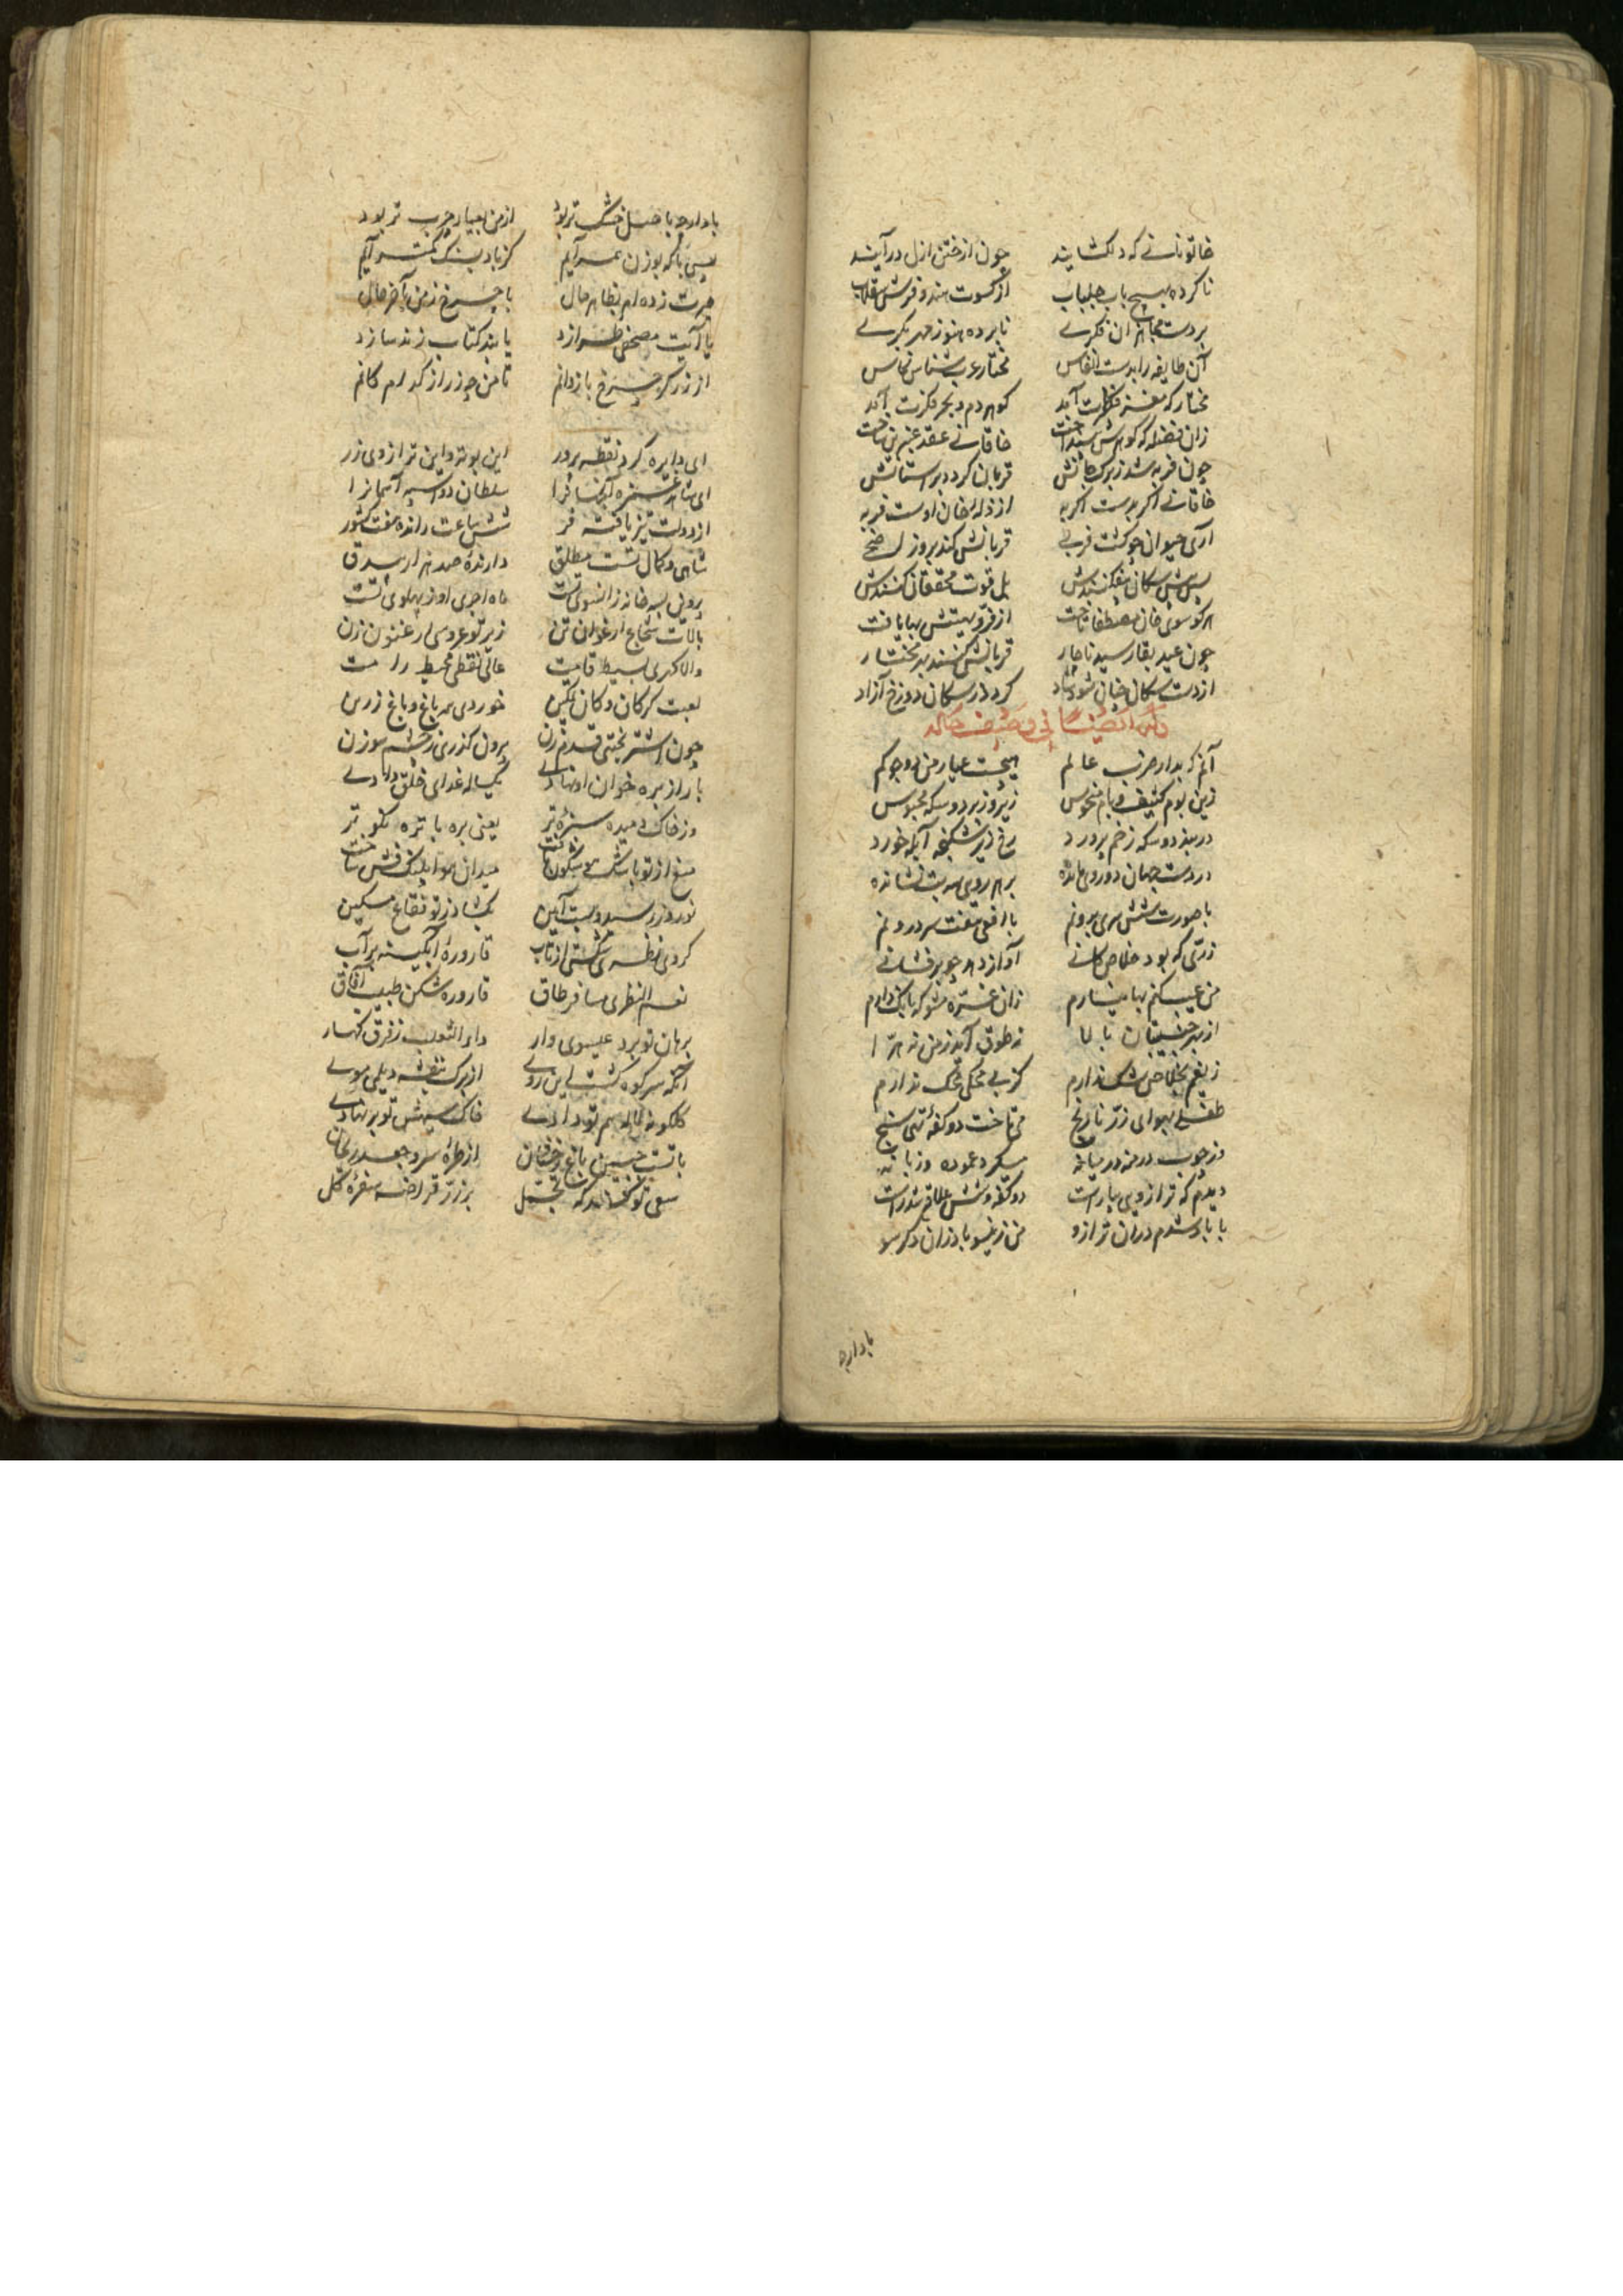 خاتونانے که دلکشایند چون از ختن ازل درآیند
ناکرده بهیچ باب جلباب از کسوت هند و فرش سقلاب
بر دست مجاهزان فکرے نابرده هنوز مهر بکرے
آن طایفه را بدست انفاس مختار عرب شناس نخاس
مختار که مغز فکرت آمد کوهر دم و بحر فکرت آمد
زان فضله که کوهرش بینداخت خاقانے عقد عنبرین ساخت
چون فربه شد زبرک جانش قربان کرد بر استانش
خاقانے اکر بدست اکر به از ذله خان اوست فربه
آری حیوان چو کشت فربے قربانش کند بروز اضحے
پس پیش سکان بیفکنندش بل قوت محققان کنندش
هرکو سوی خان مصطفا تاخت از فر بهیتش بها یافت
چون عید بقا رسید ناچار قربانش کنند بهر مختار
از دست سکان خان شود شاد کردد ز سکان دوزخ آزاد
آنم که بدار ضرب عالم هیچست عیار من بدو جو کم
زین بوم کثیف و بام منحوس زیر و زبر دو سکه محبوس
در بند دو سکه زخم پرورد رخ زیر شکنجه آبله خورد
در دست جهان دوروی مانده بر هر روی سه بت نشانده
با صورت شش سری برونم با افعی هفت سر درونم
زری که بود خلاص کانے آواز دهد چو برفشانے
من عیب کنم بها نیارم زان غره مشو که بانک دارم
از بهر جنیبتان بالا نه طوق آید ز من نه هرا
زینم بخلاص شک ندارم کز بے محکی محک ندارم
طفلے بهوای زر نارنج می تاخت دو کفه تهی سنج
وز چوب درمنه در میانه میکرد عموده و زبانه
دیدم که ترازویی بیاراست دو کفه و شش علاقه شد راست
با باد شدم دران ترازو من زینسو باد زان دکر سو
بادارچه
باد ارچه با صل خشک تر بود از من بعیار چرب تر بود
یعنی باکه بوزن بر سر آیم کز باد بسنک کمتر آیم
حیرت زده ام بظاهر حال با چرخ ز من بآخر حال
یا آیت مصحفی طرازد یا بند کتاب زند سازد
از زرکر چرخ بازدانم تا من چه زر از کدام کانم
ای دایره کرد نقطه پرور این بوته و این ترازوی زر
سلطان دو اسپه آسمانرا
از دولت تیز یافته فر شش ساعت رانده هفت کشور
شاهی و کمال تست مطلق دارنده صد هزار سیدق
ماه اجری او ز پهلوی تست
بالات شجاع ارغوان تن زیر تو عروسی ارغنون زن
والا کهری بسیط قامت عالی نقطی محیط رامت
لعبت کر کان دکان لکین خوردی بره باغ و باغ زرین
چون اشتر بختی قدم زن بیرون کذری ز چشم سوزن
باز از بره خوان نهادے یکساله غدای خلق دادے
وز خاک دمیده سبزه تر یعنی بره با تره نکوتر
نوروز رسید و بست آیین بکشاد ز تو فقاع مسکین
کردی نظر بشکستی از تاب قاروره آبکینه بر آب
نعم النظری مسافر طاق قاروره شکن طبیب آفاق
برهان تو برد عیسوی وار داء الثعلب ز فرق کهسار
آنکه سر کوه کشت از برک بنفشه دیلمی موے
کلکونه لاله هم تو دادے خاک سیهش تو برنهادے
از طره سرو جعد ریحان
بر زر قراضه سفره کل